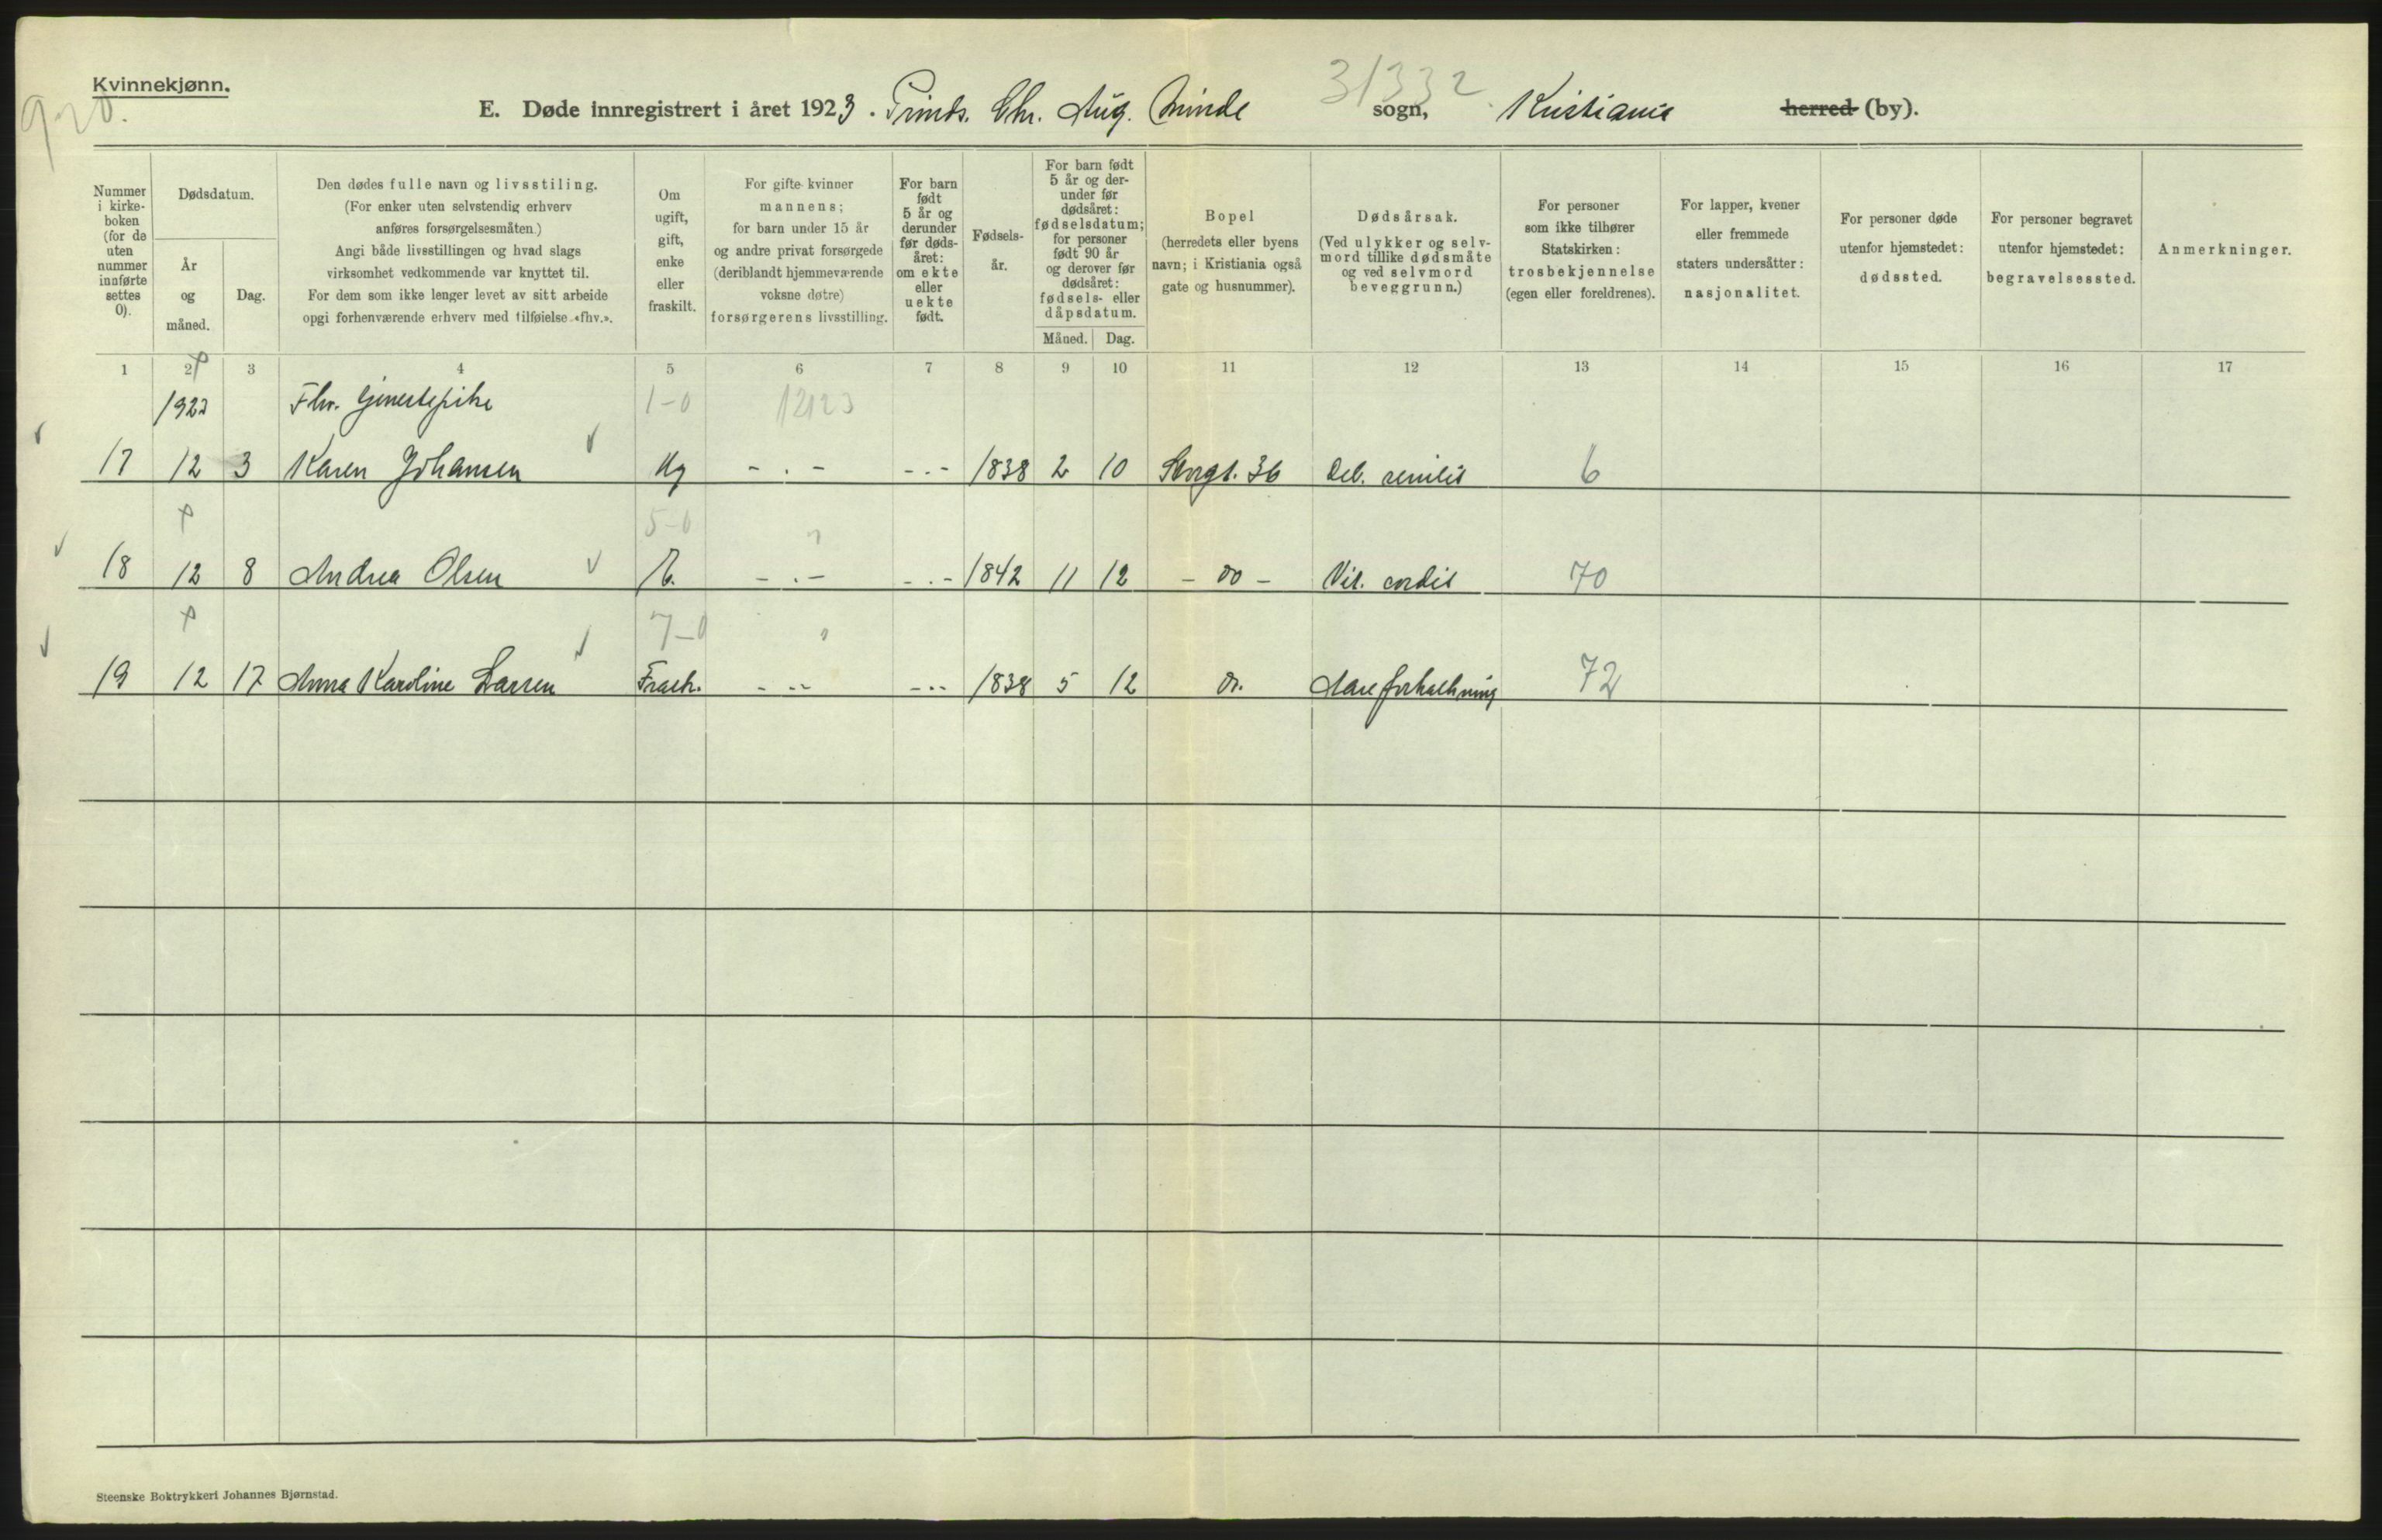 Kvinnekjønn.
920.
31332
E. Døde innregistrert i året 1923. Prinds. Chr. Aug. Minde sogn, Kristiania herred (by).
Nummer i kirkeboken (for de uten nummer innførte settes 0).
Dødsdatum.
År og måned.
Dag.
Den dødes fulle navn og livsstiling.
(For enker uten selvstendig erhverv
anføres forsørgelsesmåten)
Angi både livsstillingen og hvad slags
virksomhet vedkommende var knyttet til.
For dem som ikke lenger levet av sitt arbeide
opgi forhenværende erhverv med tilføielse «fhv.».
Om ugift, gift, enke eller fraskilt.
For gifte kvinner
mannens;
for barn under 15 år
og andre privat forsørgede
(deriblandt hjemmeværende
voksne døtre)
forsørgerens livsstilling.
For barn født 5 år og derunder før dødsåret: om ekte eller uekte født.
Fødselsår.
For barn født 5 år og derunder før dødsåret: fødselsdatum; for personer født 90 år og derover før dødsåret: fødsels- eller dåpsdatum.
Måned. Dag.
Bopel
(herredets eller byens
navn; i Kristiania også
gate og husnummer).
Dødsårsak.
(Ved ulykker og selvmord tillike dødsmåte og ved selvmord beveggrunn.)
For personer
som ikke tilhører
Statskirken:
trosbekjennelse
(egen eller foreldrenes).
For lapper, kvener
eller fremmede
staters undersåtter:
nasjonalitet.
For personer døde
utenfor hjemstedet:
dødssted.
For personer begravet
utenfor hjemstedet:
begravelsessted.
Anmerkninger.
1 2 3 4 5 6 7 8 9 10 11 12 13 14 15 16 17
1923 Fhv. tjenestepike 1-0 12123
17 12 3 Karen Johansen Ug -.- -.- 1838 2 10 Storgt. 36 Deb. senilis 6
5-0
18 12 8 Andrea Olsen E. -.- -.- 1842 11 12 - do - Vit. cordis 70
7-0
19 12 17 Anna Karoline Larsen Frask. --- --- 1838 5 12 do. Aareforkalkning 72
Steenske Boktrykkeri Johannes Bjørnstad.